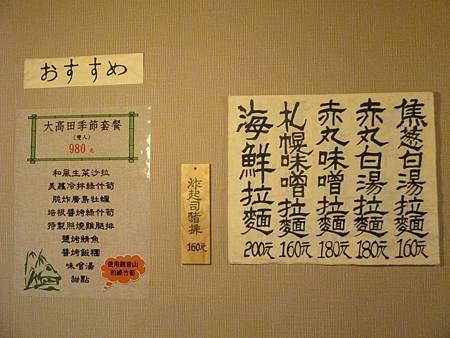 おすすめ
大高田季節套餐
(雙人)
980元
和風生菜沙拉
美蘿冷拌綠竹筍
脆炸廣島牡蠣
培根醬烤綠竹筍
特製照燒雞腿排
鹽烤鯖魚
醬烤飯糰
味噌湯
甜點
使用觀音山
的綠竹筍
炸起司豬排
160元
焦蔥白湯拉麵
160元
赤丸白湯拉麵
180元
赤丸味噌拉麵
180元
札幌味噌拉麵
160元
海鮮拉麵
200元